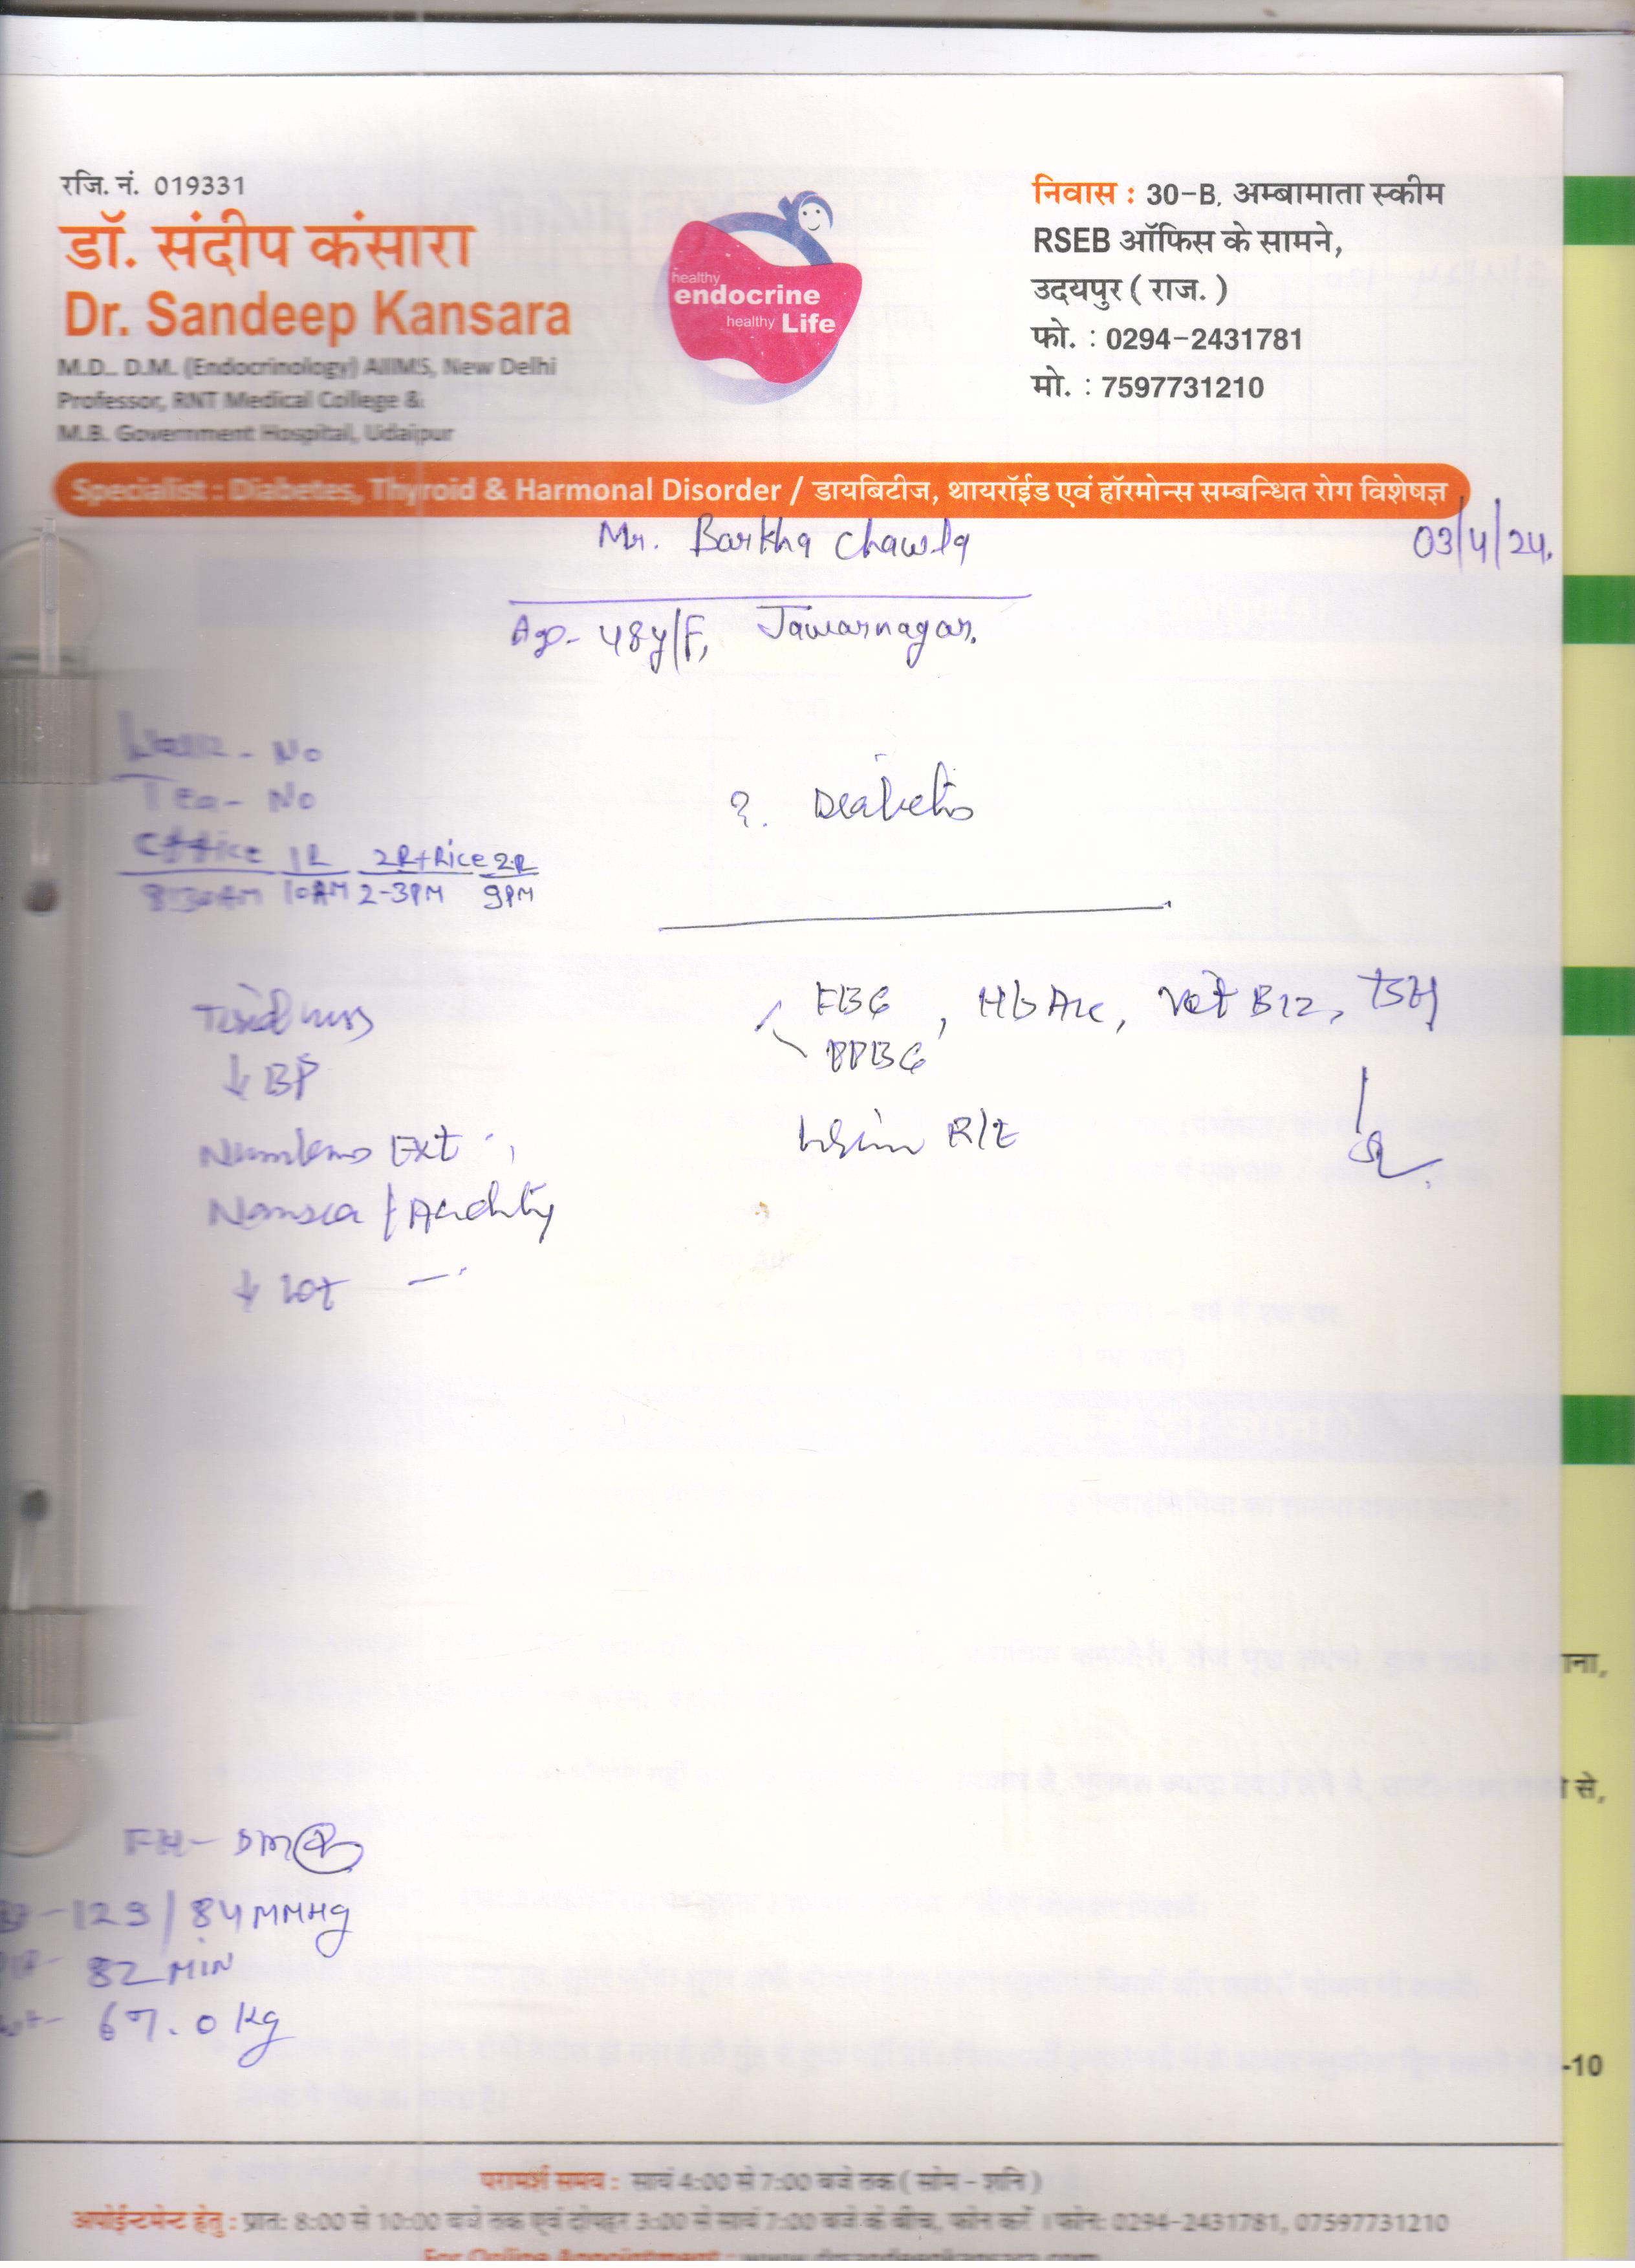 रजि. नं. 019331
डॉ. संदीप कंसारा
Dr. Sandeep Kansara
M.D., D.M. (Endocrinology) AIIMS, New Delhi
Professor, RNT Medical College &
M.B. Government Hospital, Udaipur
healthy
endocrine
healthy Life
निवास : 30-B, अम्बामाता स्कीम
RSEB ऑफिस के सामने,
उदयपुर ( राज. )
फो. : 0294-2431781
मो. : 7597731210
Specialist : Diabetes, Thyroid & Harmonal Disorder / डायबिटीज, थायरॉईड एवं हॉरमोन्स सम्बन्धित रोग विशेषज्ञ
Mr. Barkha Chawla
03/4/24.
Age- 48y/F, Jawarnagar.
Walk - No
Tea - No
Office 1R 2R+Rice 2R
8:30AM 10AM 2-3PM 9PM
?. Diabetis
Tiredness
↓ BP
Numbness Ext
Nausea / Acidity
↓ wt
FBG, HbA1c, Vit B12, TSH
PPBG
Urine R/E
FH- DM
129/84 MMHg
82 MIN
wt- 67.0 Kg
ाना,
से,
-10
परामर्श समय : सायं 4:00 से 7:00 बजे तक ( सोम - शनि )
अपोईन्टमेन्ट हेतु : प्रात: 8:00 से 10:00 बजे तक एवं दोपहर 3:00 से सायं 7:00 बजे के बीच, फोन करें । फोन: 0294-2431781, 07597731210
For Online Appointment : www.drsandeepkansara.com